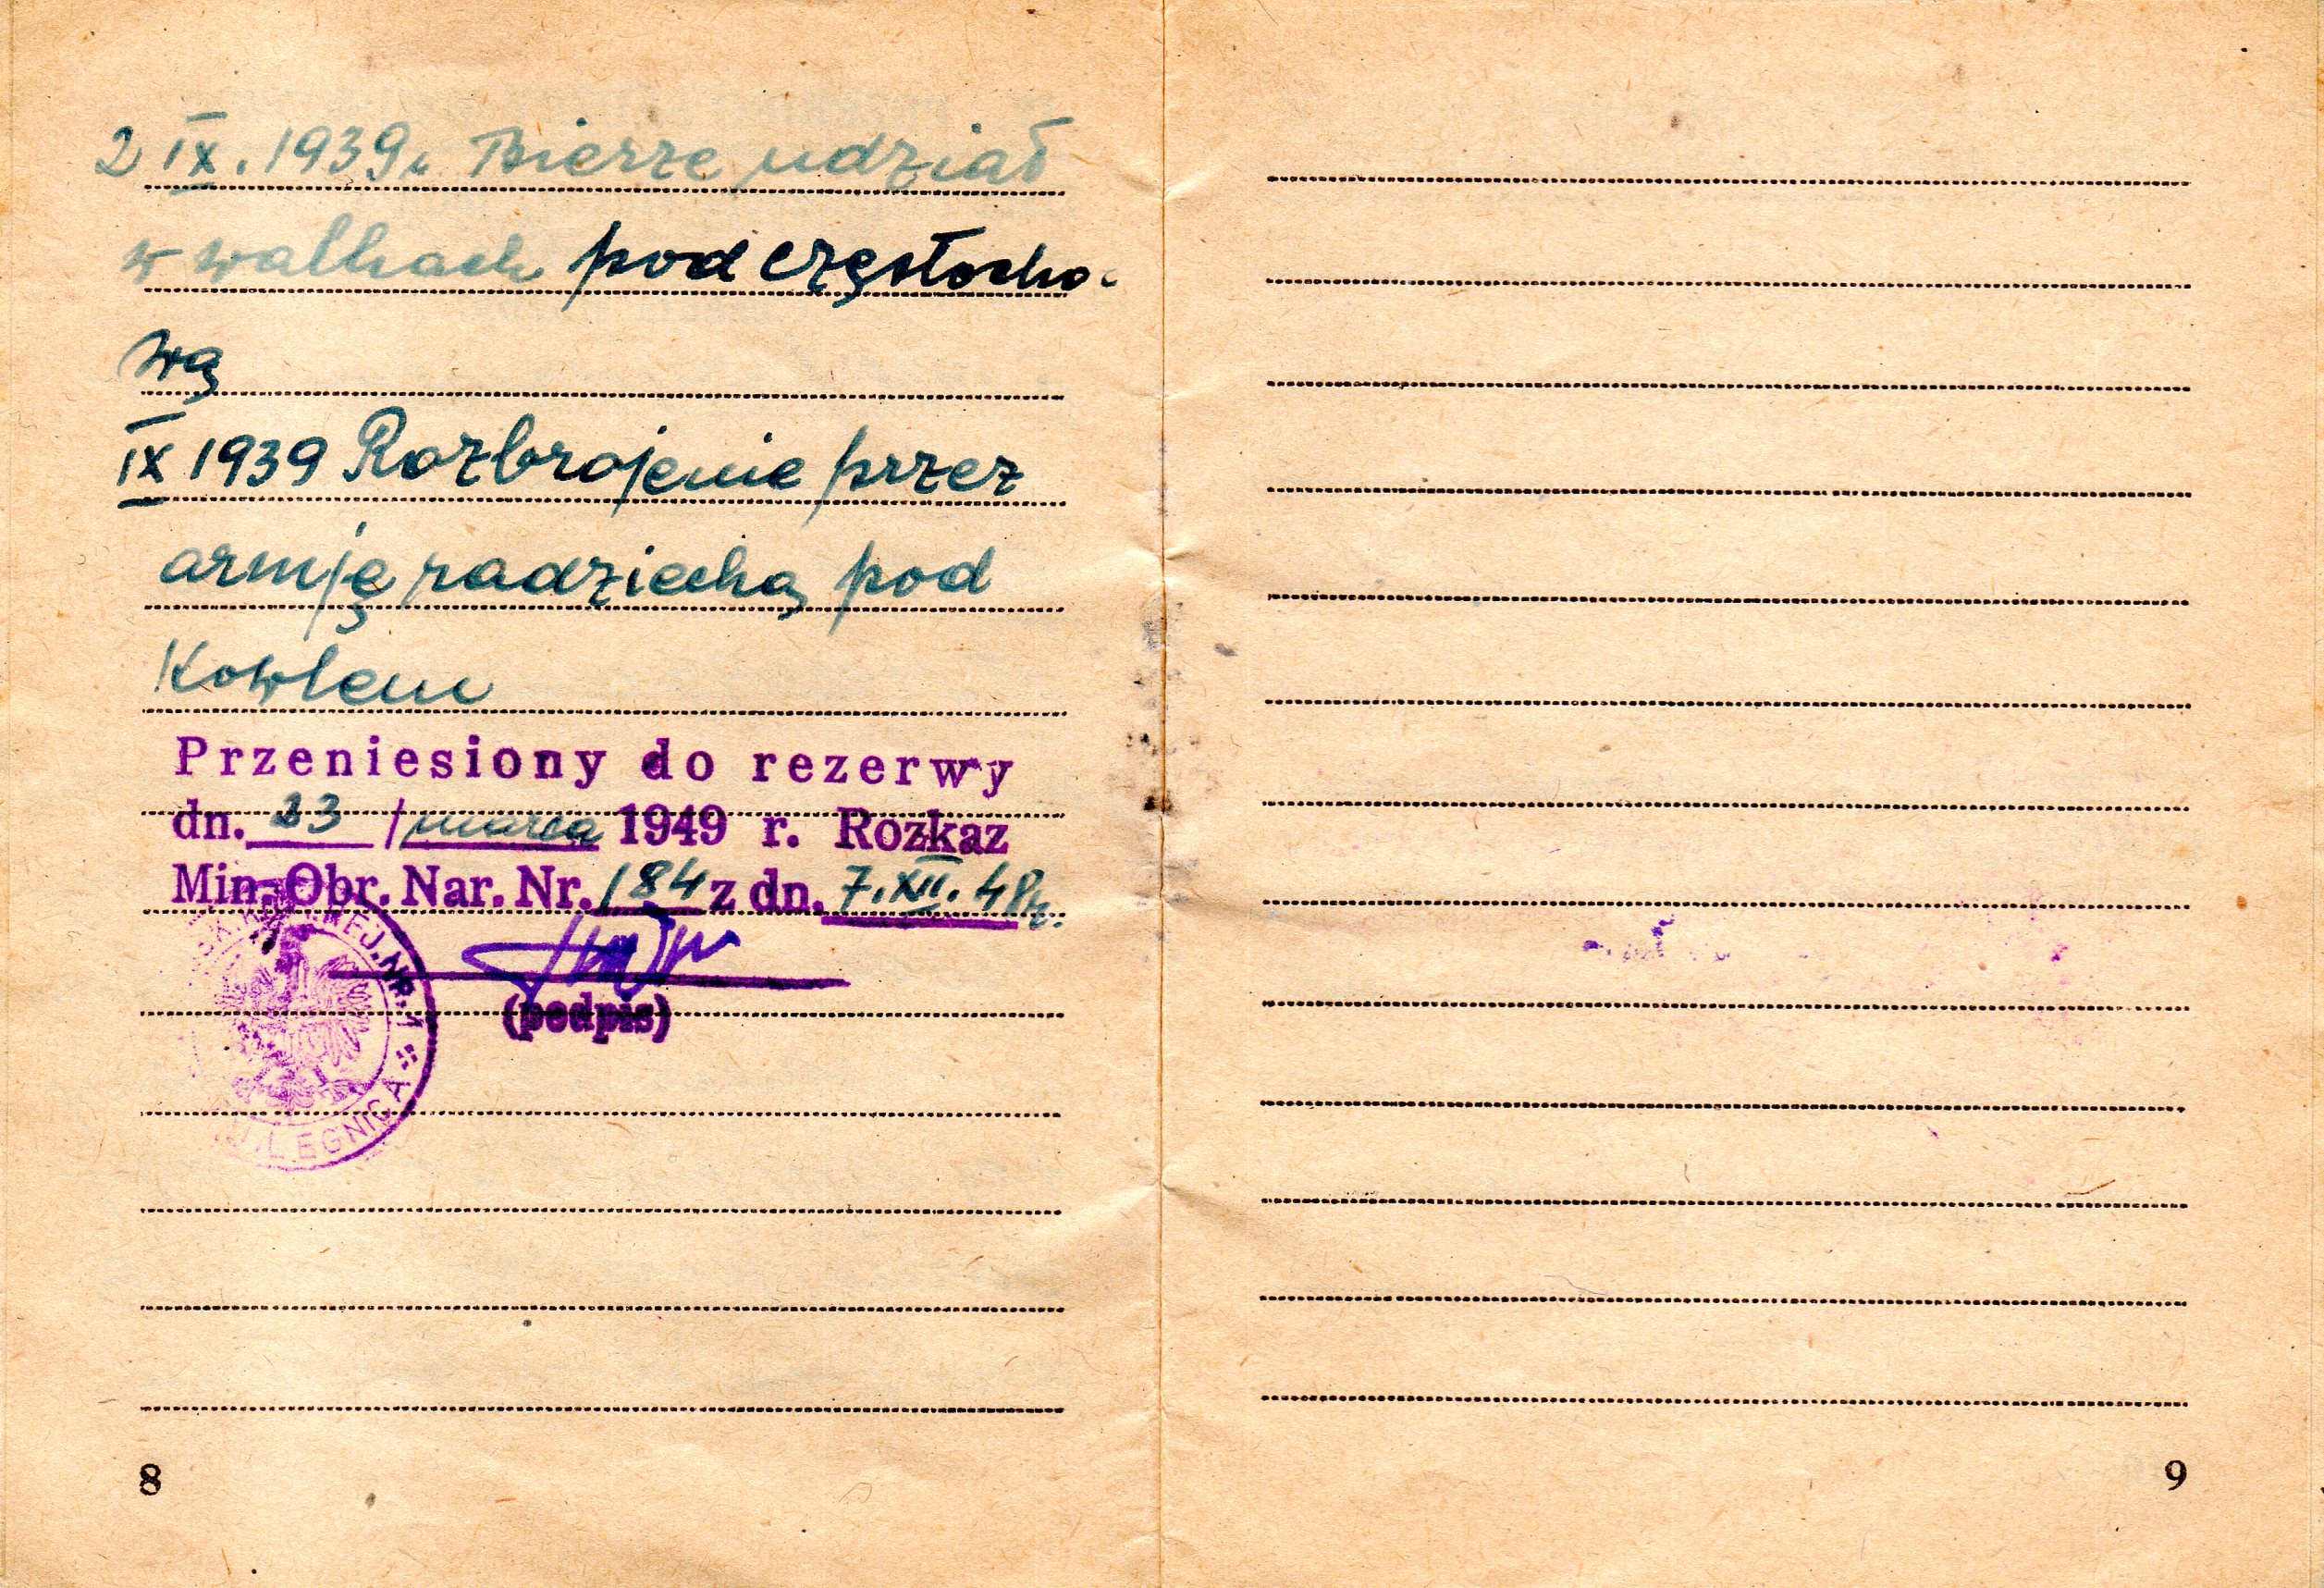 2 IX. 1939r. Bierze udział
w walkach pod Częstocho-
wą
IX 1939 Rozbrojenie przez
armję radziecką pod
Kowlem
Przeniesiony do rezerwy
dn. 23 / marca 1949 r. Rozkaz
Min. Obr. Nar. Nr. 184 z dn. 7.XII.48r.
(podpis)
WEJ. NR. 1
LEGNICA
8
9